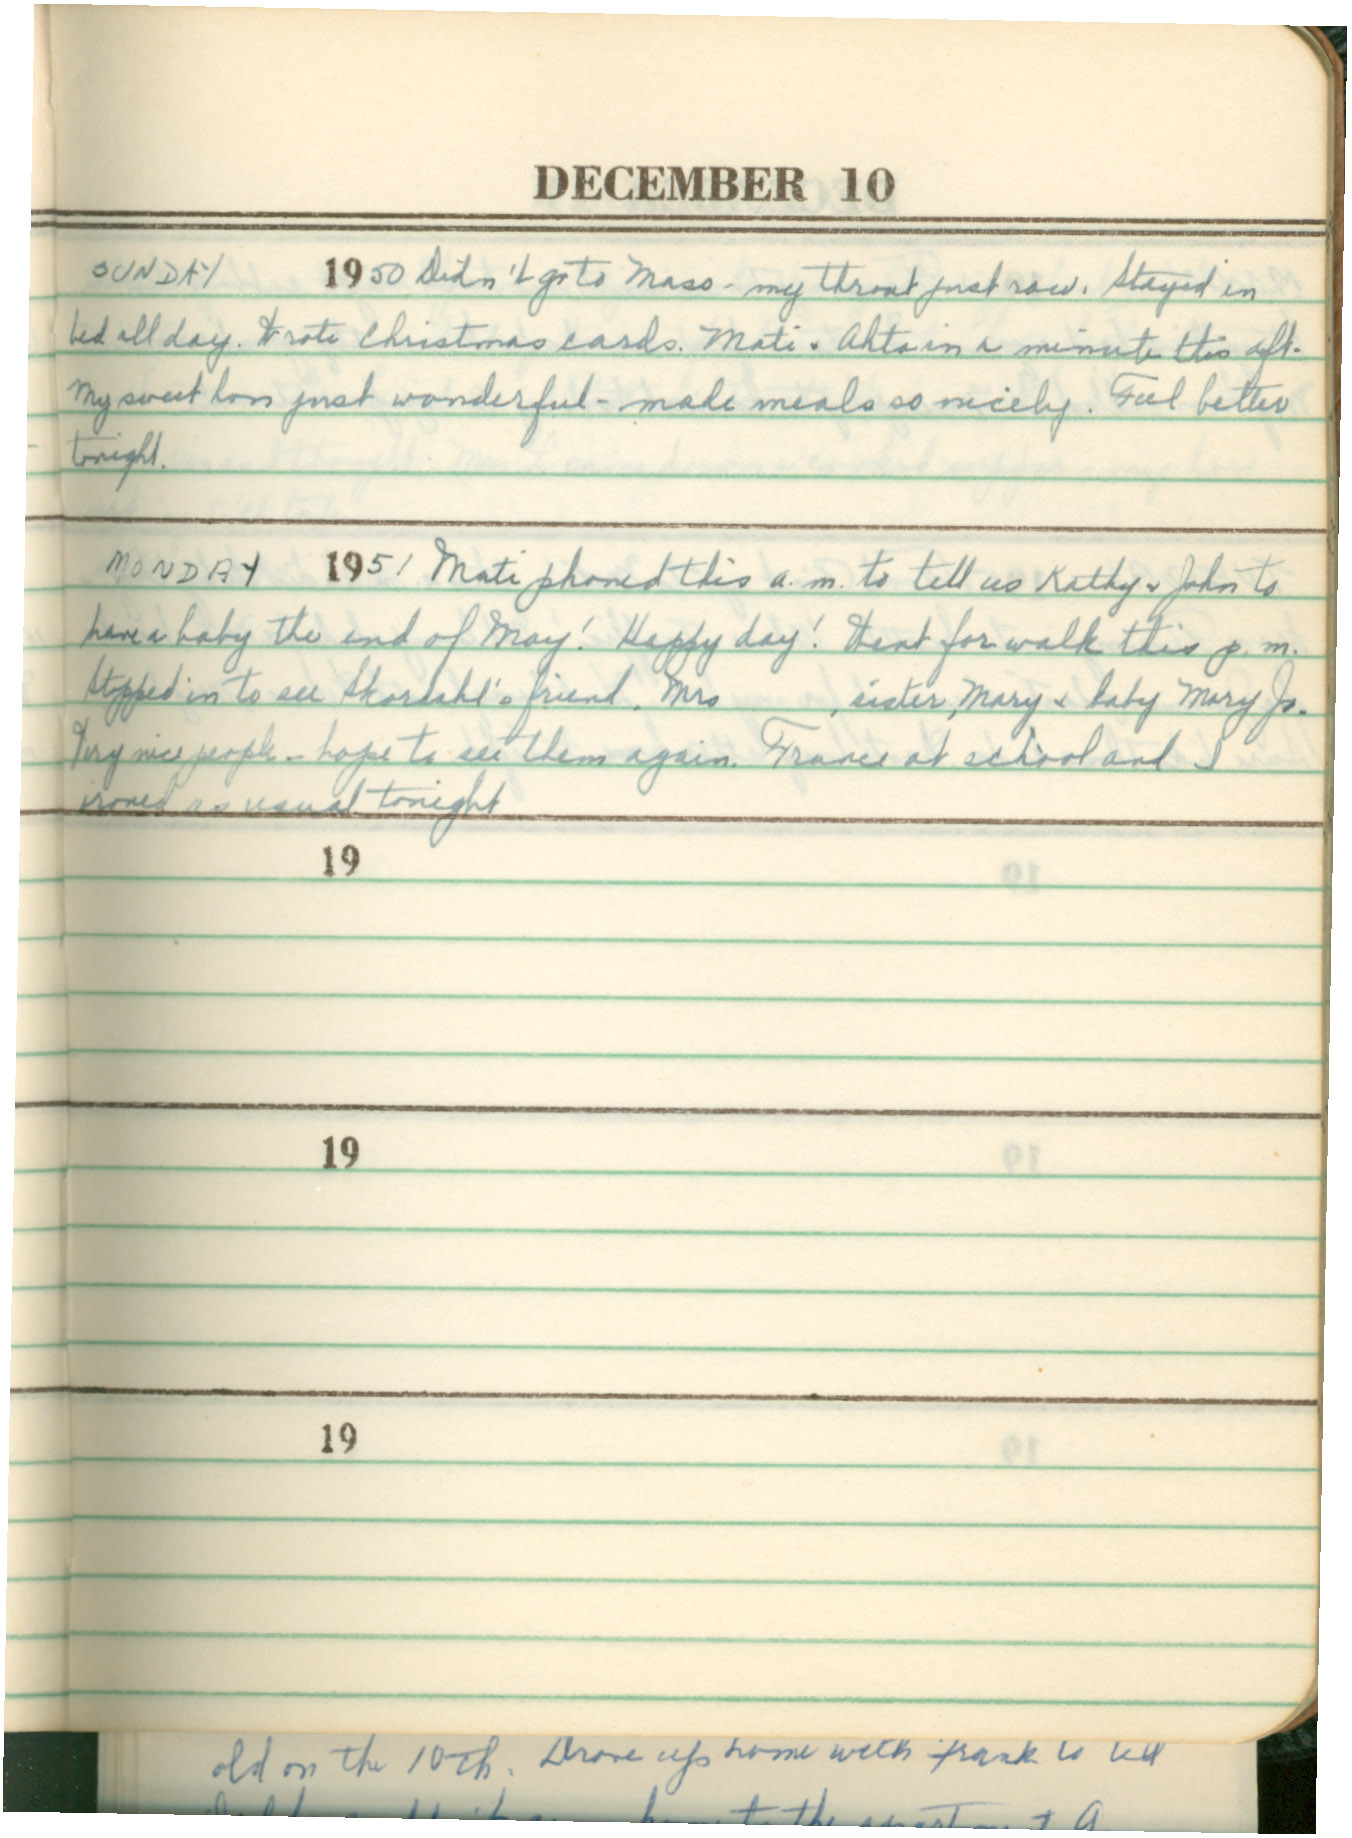 DECEMBER 10
SUNDAY 1950 Didn't go to Mass - my throat just raw. Stayed in
bed all day. Wrote Christmas cards. Mati & in a minute this aft.
My sweet hon just wonderful - made meals so nicely. Feel better
tonight.
MONDAY 1951 Mati phoned this a.m. to tell us Kathy & John to
have a baby the end of May! Happy day! Went for walk this p.m.
Stopped in to see friend, Mrs , sister, Mary & baby Mary Jo.
Very nice people - hope to see them again. France at school and I
ironed as usual tonight
19
19
19
old on the 10th. Drove up home with Frank to
home to the apartment